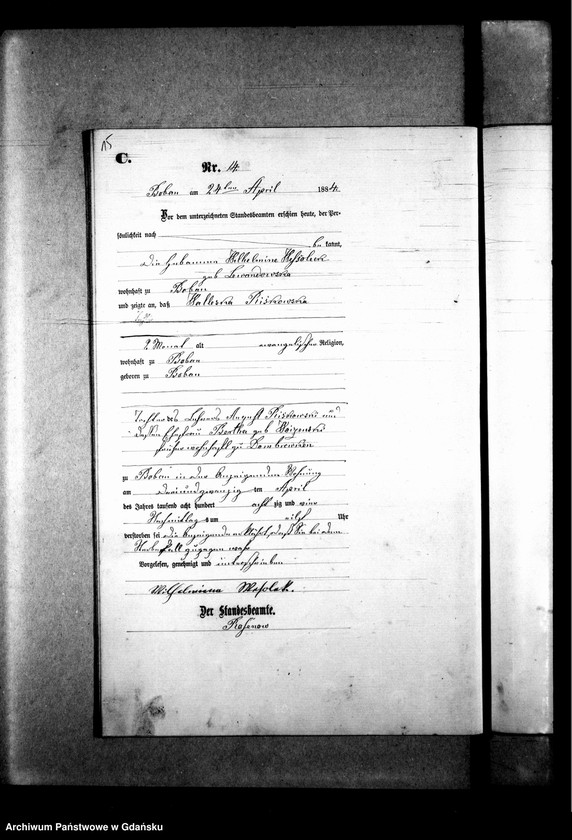 15
C.
Nr. 14.
Boban am 24ten April 1884.
Vor dem unterzeichneten Standesbeamten erschien heute, der Per-
sönlichkeit nach
bekannt,
die Hebamme Wilhelmine
geb Lewandowska
wohnhaft zu Boban
und zeigte an, daß Valleska
2 Monat alt evangelischer Religion,
wohnhaft zu Boban
geboren zu Boban
Tochter des Lehrers August und
dessen Ehefrau Bertha geb
früher wohnhaft zu
zu Boban in der Anzeigenden Wohnung
am dreiundzwanzig ten April
des Jahres tausend acht hundert acht zig und vier
Nachmittag s um Uhr
verstorben sei die Anzeigende daß Sie bei dem
zugegen war
Vorgelesen, genehmigt und unterschrieben
Wilhelmina
Der Standesbeamte.
Archiwum Państwowe w Gdańsku